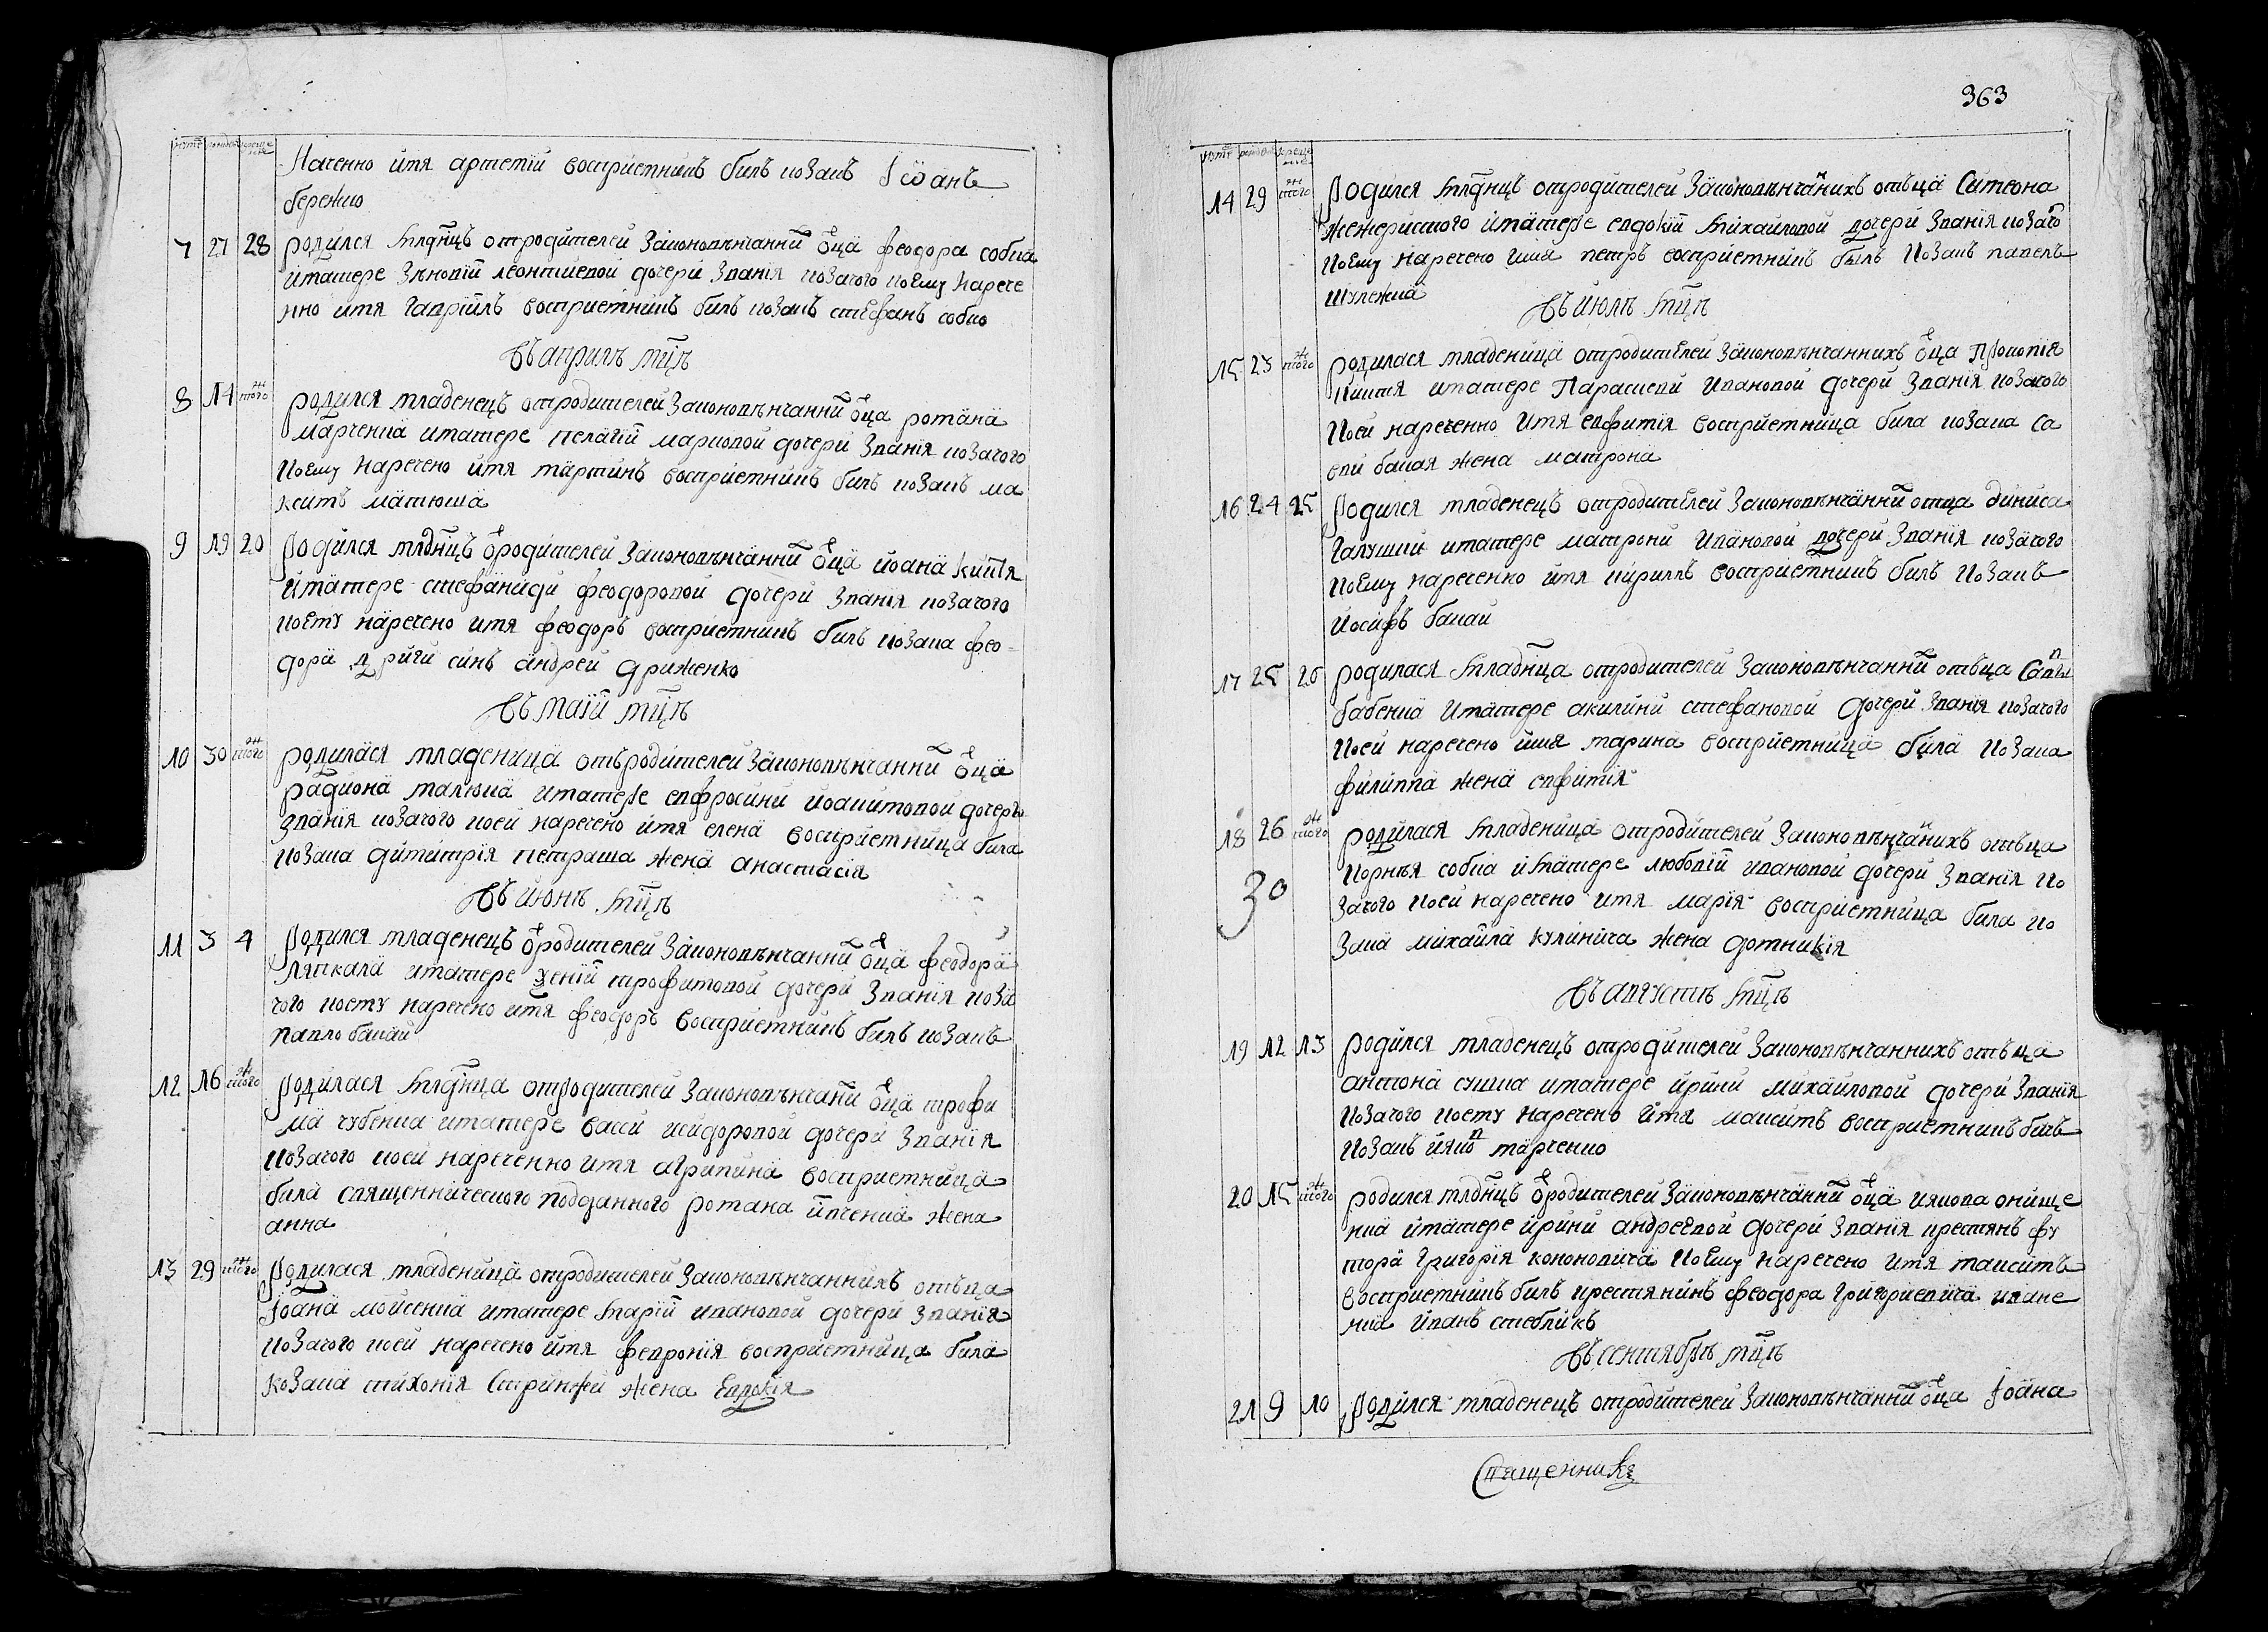 Наченно имя артемій восприемникъ билъ козакъ Іѡанъ
бережко
7 27 28 родился младнцъ отродителей законовѣнчанни оца феодора собка
иматере Зѣновіи леонтиевой дочери Званія козачого коему нарече
нно имя гавріилъ восприемникъ билъ козакъ стефанъ собко
въ априлѣ мцѣ
8 14 того ж родился младенецъ отродителей Законовѣнчанни оца романа
марченка иматере пелагіи марковой дочери Званія козачого
коему наречено имя мартинъ восприемникъ билъ козакъ ма
ксимъ матюша
9 19 20 родился млднцъ ородителей Законовѣнчанни оца иоана китя
иматере стефаниди феодоровой дочери Званія козачого
коему наречено имя феодоръ восприемникъ билъ козака фео-
дора дриги синъ андрей дриженко
въ маіи мцѣ
10 30 того ж родилася младеница отъродителей Законовѣнчанни оца
радиона малюка иматере евфросини иоакимовой дочеръ
званія козачого коей наречено имя елена восприемница била
козака димитрія петраша жена анастасія
въ июнѣ мцѣ
11 3 4 родился младенецъ ородителей Законовѣнчанни оца феодора
ляпкала иматере ѯеніи трофимовой дочери Званія коза
чого коему наречено имя феодоръ восприемникъ билъ козакъ
павло бакай
12 16 того ж родилася младнца отродителей Законовѣнчани оца трофи
ма чубенка иматере васси исидоровой дочери Званія
козачого коей нареченно имя агрипина восприемница
била священнического подданного романа жена
анна
13 29 того ж родилася младеница отродителей Законовѣнчаннихъ отъца
Іоана мойсенка иматере маріи ивановой дочери Званія
козачого коей наречено имя февронія восприемница била
козака тихонія Стрижей жена Евдокія
363
14 29 того ж родился младнцъ отродителей Законовѣнчанихъ отъца Симеона
жежериского иматере евдокіи михаиловой дочери Званія козачо
коему наречено имя петръ восприемникъ былъ козакъ павелъ
шулежка
въ июлѣ мцѣ
15 23 того ж родилася младеница отродителей Законовѣнчаннихъ оца прокопія
китя иматере Параскевы ивановой дочери Званія козачого
коей нареченно имя евфимія восприемница била козака са
вки бакая жена матрона
16 24 25 родился младенецъ отродителей Законовѣнчанни отца диниса
галушки иматере матрони ивановой дочери Званія козачого
коему нареченно имя кириллъ восприемникъ билъ козакъ
иосифъ бакай
17 25 26 родилася младнца отродителей Законовѣнчанни отъца Саввы
бабенка иматере акилини стефановой дочери Званія козачого
коей наречено имя марина восприемница била козака
филиппа жена евфимія
18 26 того ж родилася младеница отродителей Законовѣнчанихъ отъца
корнѣя собка иматере любовіи ивановой дочери Званія ко
зачого коей наречено имя марія восприемница била ко
зака михайла кулинича жена домникія
30
въ августѣ мцѣ
19 12 13 родился младенецъ отродителей Законовѣнчаннихъ отъца
антона сушка иматере ирини михайловой дочери Званія
козачого коему наречено имя максимъ восприемникъ билъ
козакъ марченко
20 15 того ж родился млднцъ ородителей Законовѣнчанни оца иякова онище
нка иматере ирини андреевой дочери Званія крестянъ фу
тора григорія кононовича коему наречено имя максимъ
восприемникъ билъ крестянинъ феодора григориевича иване
нка иванъ стеблѣкъ
въ сентябрѣ мцѣ
21 9 10 родился младенецъ отродителей Законовѣнчанни оца Іоана
Священникъ